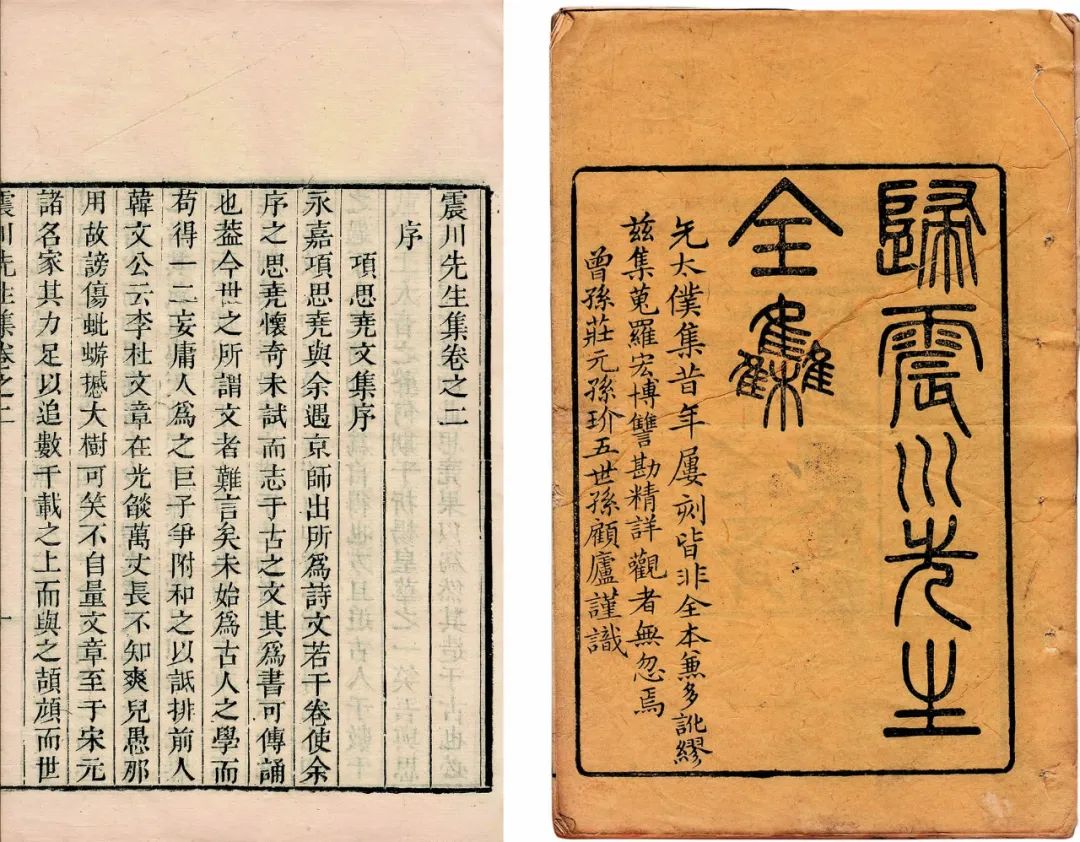 歸震川先生
全集
先太僕集昔年屢刻皆非全本兼多訛繆
茲集蒐羅宏博讐勘精詳觀者無忽焉
曾孫莊元孫玠五世孫顧廬謹識
震川先生集卷之二
序
項思堯文集序
永嘉項思堯與余遇京師出所為詩文若干卷使余
序之思堯懷奇未試而志于古之文其為書可傳誦
也蓋今世之所謂文者難言矣未始為古人之學而
苟得一二妄庸人為之巨子爭附和之以詆排前人
韓文公云李杜文章在光燄萬丈長不知羣兒愚那
用故謗傷蚍蜉撼大樹可笑不自量文章至于宋元
諸名家其力足以追數千載之上而與之頡頏而世
震川先生集卷之二 一